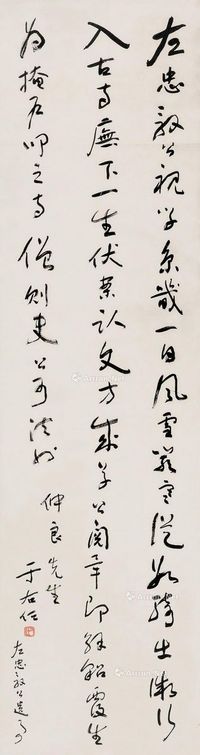 左忠毅公視學京畿一日風雪嚴寒從數騎出微行
入古寺廡下一生伏案臥文方成草公閱畢即解貂覆生
為掩戶叩之寺僧則史公可法也
仲良先生
于右任
左忠毅公遺事